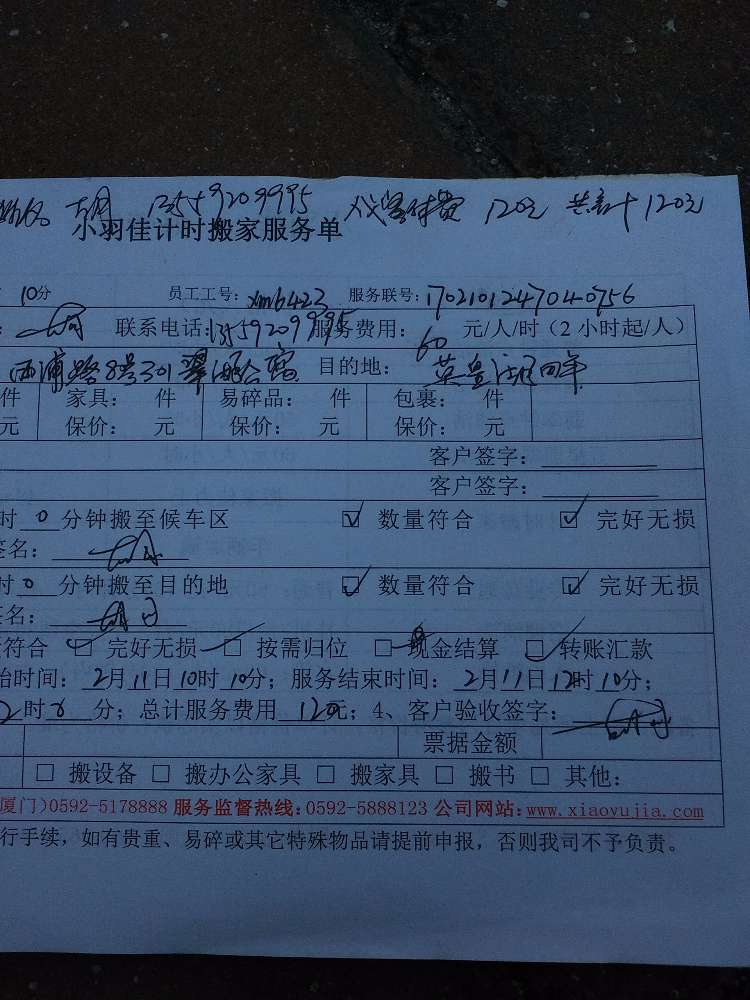 胡 13559209995 代客付费 120元 共计120元
小羽佳计时搬家服务单
10分 员工工号：xm6423 服务联号：1702101247040756
联系电话：13559209995 服务费用：60 元/人/时（2小时起/人）
西浦路8号301翠湖公寓 目的地：
件 家具： 件 易碎品： 件 包裹： 件
元 保价： 元 保价： 元 保价： 元
客户签字：
客户签字：
时 0 分钟搬至候车区 ☑ 数量符合 ☑ 完好无损
签名：
时 0 分钟搬至目的地 ☑ 数量符合 ☑ 完好无损
签名：
符合 ☑ 完好无损 ☑ 按需归位 □ 现金结算 ☑ 转账汇款
始时间：2月11日10时10分；服务结束时间：2月11日12时10分；
2时0分；总计服务费用 120元；4、客户验收签字：
票据金额
□ 搬设备 □ 搬办公家具 □ 搬家具 □ 搬书 □ 其他：
厦门）0592-5178888 服务监督热线：0592-5888123 公司网站：www.xiaoyujia.com
行手续，如有贵重、易碎或其它特殊物品请提前申报，否则我司不予负责。